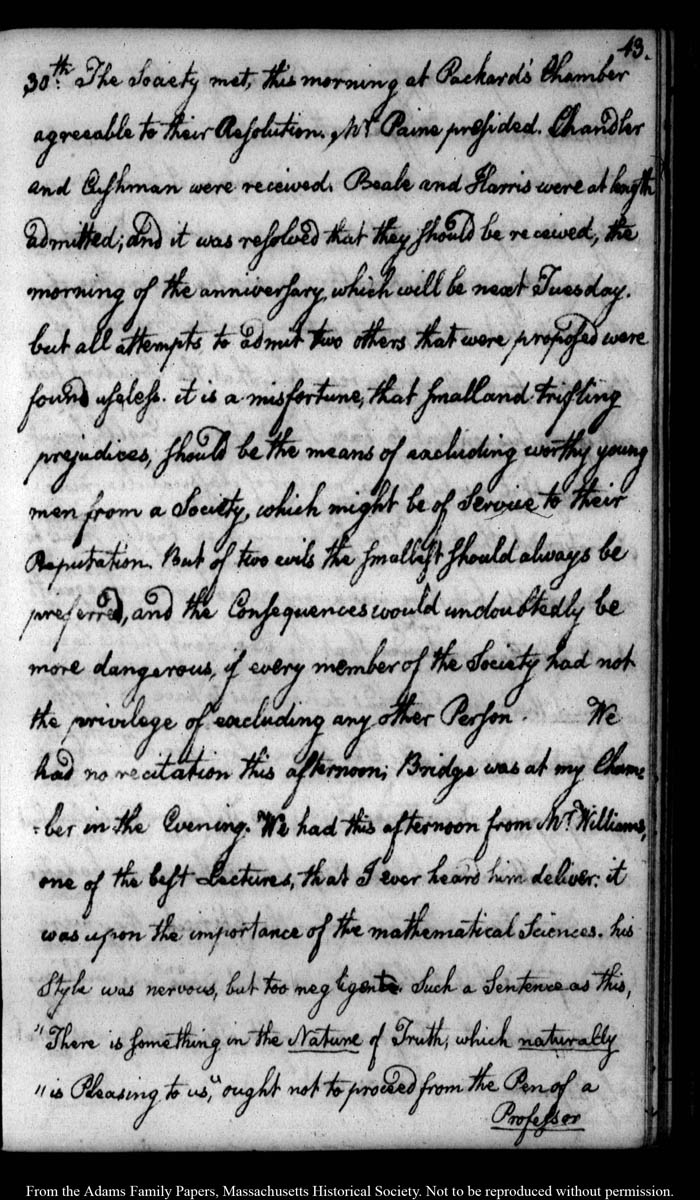 43.
30th. The Society met, this morning at Packard's Chamber
agreeable to their Resolution. Mr. Paine presided. Chandler
and Cushman were received. Beale and Harris were at length
admitted; and it was resolved that they should be received, the
morning of the anniversary, which will be next Tuesday.
but all attempts to admit two others that were proposed were
found useless. it is a misfortune, that small and trifling
prejudices, should be the means of excluding worthy young
men from a Society, which might be of Service to their
Reputation. But of two evils the smallest should always be
preferred, and the Consequences would undoubtedly be
more dangerous, if every member of the Society had not
the privilege of excluding any other Person. We
had no recitation this afternoon; Bridge was at my Cham=
=ber in the Evening. We had this afternoon from Mr. Williams,
one of the best Lectures, that I ever heard him deliver: it
was upon the importance of the mathematical Sciences. his
Style was nervous, but too negligent. Such a Sentence as this,
"There is something in the Nature of Truth, which naturally
"is Pleasing to us," ought not to proceed from the Pen of a
Professor
From the Adams Family Papers, Massachusetts Historical Society. Not to be reproduced without permission.